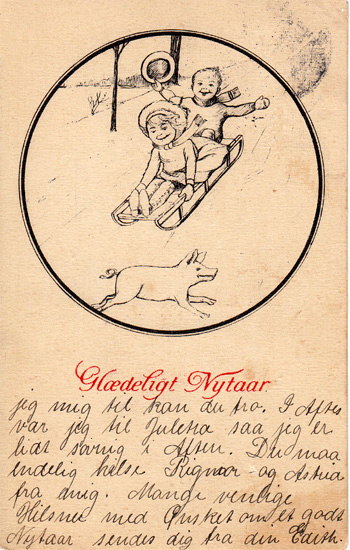 Glædeligt Nytaar
jeg mig til kan du tro. I Aftes
var jeg til Juletræ saa jeg er
lidt søvnig i Aften. Du maa
endelig hilse Rigmor og Astrid
fra mig. Mange venlige
Hilsner med Ønsket om et godt
Nytaar sendes dig fra din Edith.